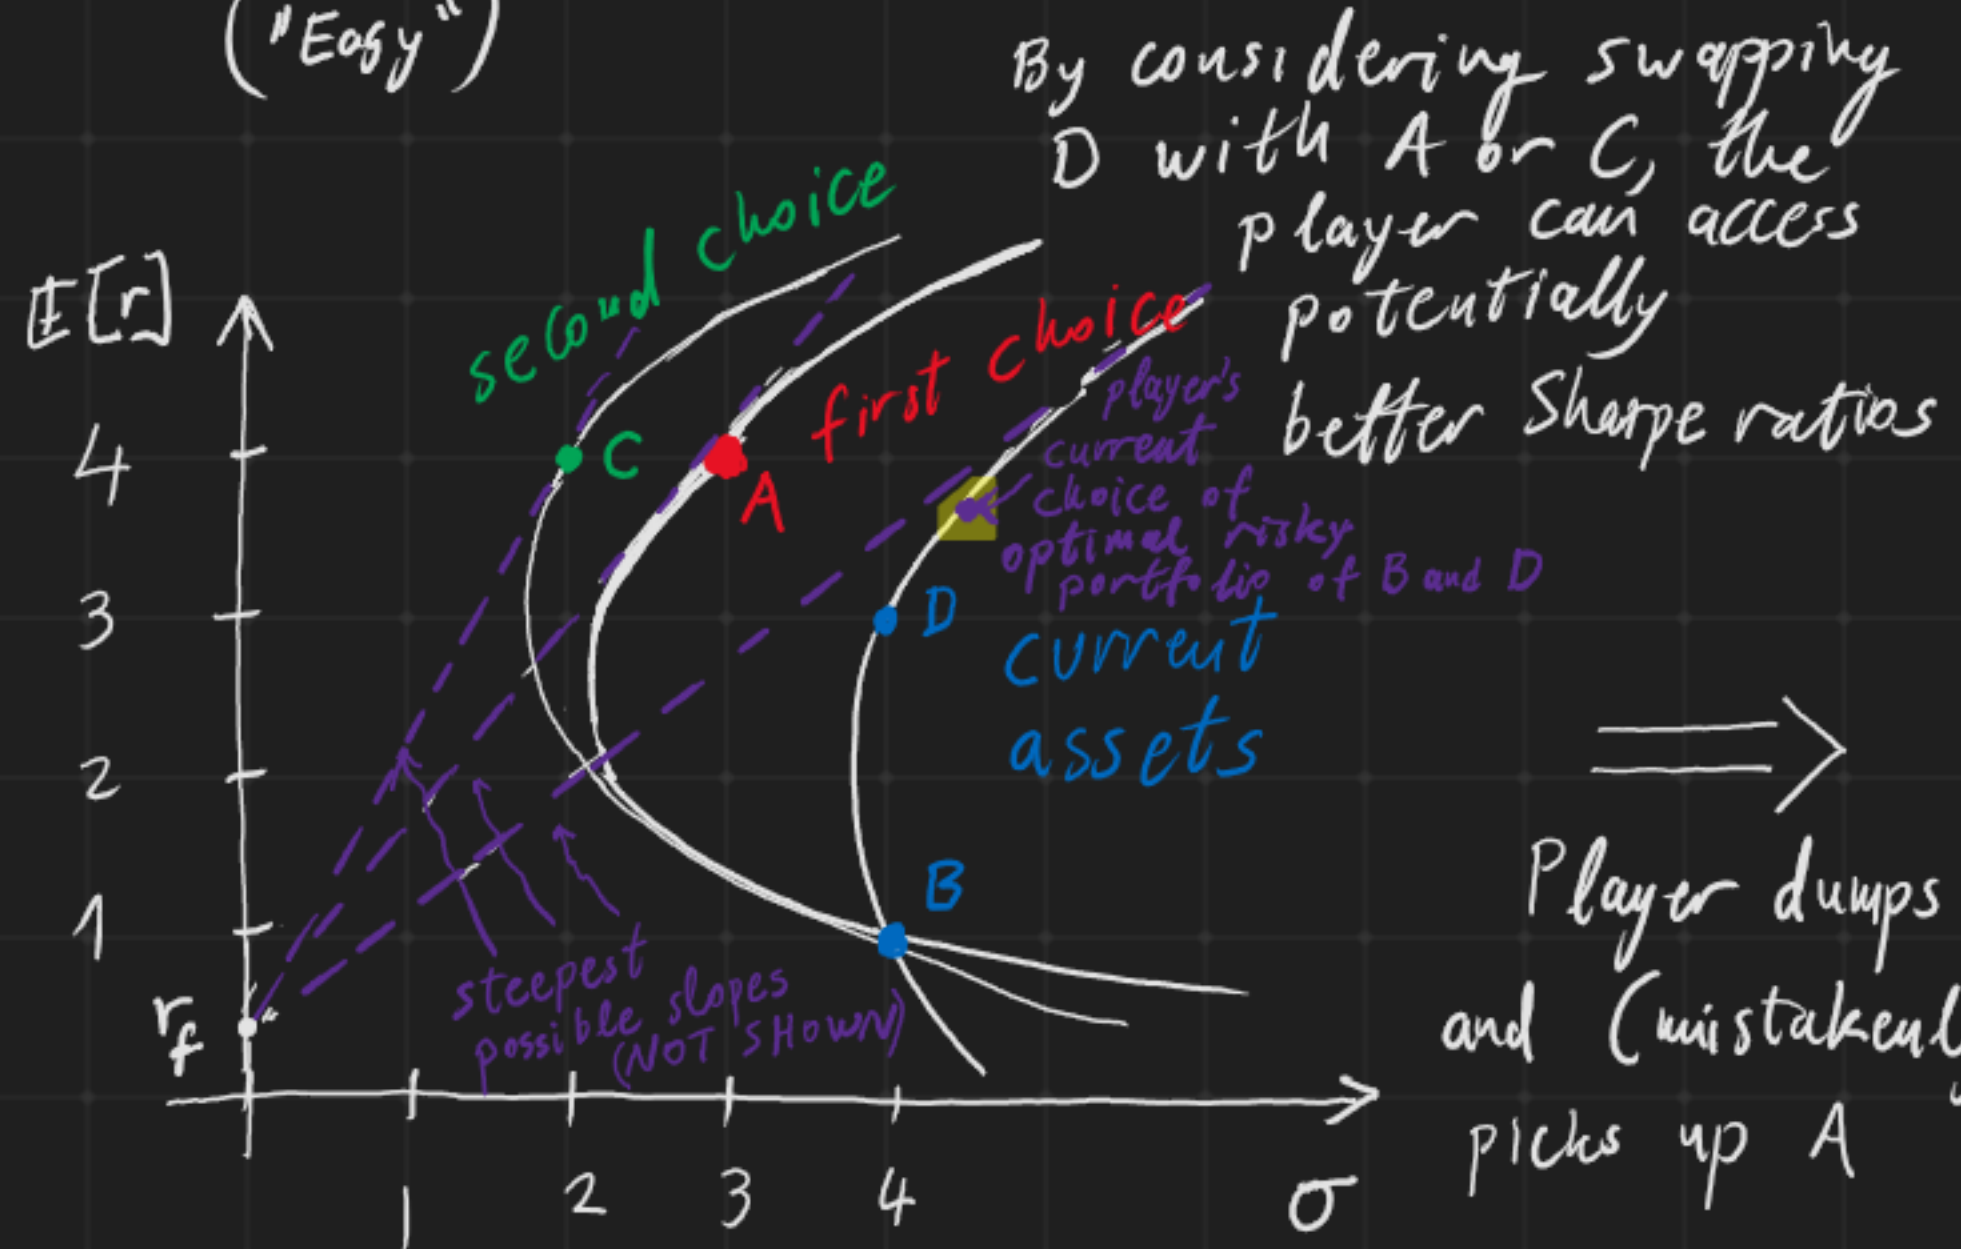 ("Easy")
By considering swapping
D with A or C, the
player can access
potentially
better Sharpe ratios
second choice
E[r]
first choice
player's
current
choice of
optimal risky
portfolio of B and D
4
C
A
3
D
current
assets
2
B
1
Player dumps
steepest
possible slopes
(NOT SHOWN)
rf
and (mistakenl
picks up A
1 2 3 4 σ